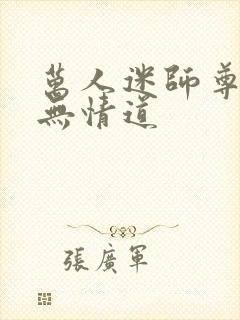 萬人迷師尊
無情道
張廣軍